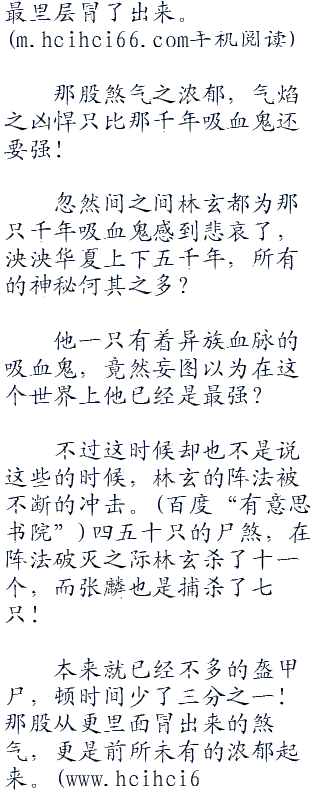 最里层冒了出来。
(m.hcihci66.com手机阅读)
那股煞气之浓郁，气焰
之凶悍只比那千年吸血鬼还
要强!
忽然间之间林玄都为那
只千年吸血鬼感到悲哀了，
泱泱华夏上下五千年，所有
的神秘何其之多?
他一只有着异族血脉的
吸血鬼，竟然妄图以为在这
个世界上他已经是最强?
不过这时候却也不是说
这些的时候，林玄的阵法被
不断的冲击。(百度“有意思
书院”)四五十只的尸煞，在
阵法破灭之际林玄杀了十一
个，而张麟也是捕杀了七
只!
本来就已经不多的盔甲
尸，顿时间少了三分之一!
那股从更里面冒出来的煞
气，更是前所未有的浓郁起
来。(www.hcihci6